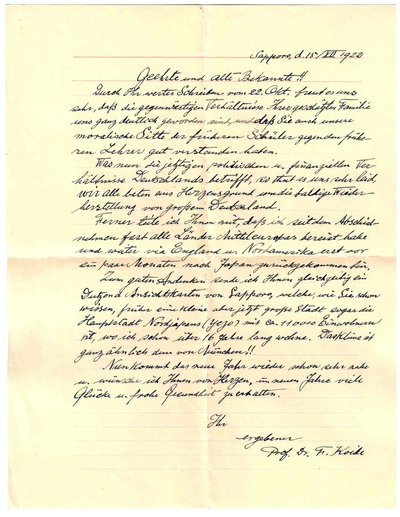 Sapporo, d. 15/XII 1922
Geehrte und alte Bekannte!!
Durch Ihr wertes Schreiben vom 22. Okt. freut es uns
sehr, daß die gegenwärtigen Verhältnisse Ihrer geschätzten Familie
uns ganz deutlich geworden sind, und daß Sie auch unsere
moralische Sitte der früheren Schüler gegen den frühe-
ren Lehrer gut verstanden haben.
Was nun die jetzigen, politischen u. finanziellen Ver-
hältnisse Deutschlands betrifft, so thut es uns sehr leid,
wir alle beten aus Herzensgrund um die baldige Wieder-
herstellung von großem Deutschland.
Ferner teile ich Ihnen mit, daß ich seit dem Abschied-
nehmen fast alle Länder Mitteleuropas bereist habe
und via England u. Nordamerika erst vor
ein paar Monaten nach Japan zurückgekommen bin.
Zum guten Andenken sende ich Ihnen gleichzeitig ein
Dutzend Ansichtskarten von Sapporo, welche, wie Sie schon
wissen, früher eine kleine aber jetzt große Stadt sogar die
Hauptstadt Nordjapans (Yezo) mit ca. 110000 Einwohnern
ist, wo ich schon über 16 Jahre lang wohne. Das Klima ist
ganz ähnlich dem von München!!
Nun kommt das neue Jahr wieder schon sehr nahe
u. wünsche ich Ihnen von Herzen, im neuen Jahre viele
Glücke u. frohe Gesundheit zu erhalten.
Ihr
ergebener
Prof. Dr. F. Koide